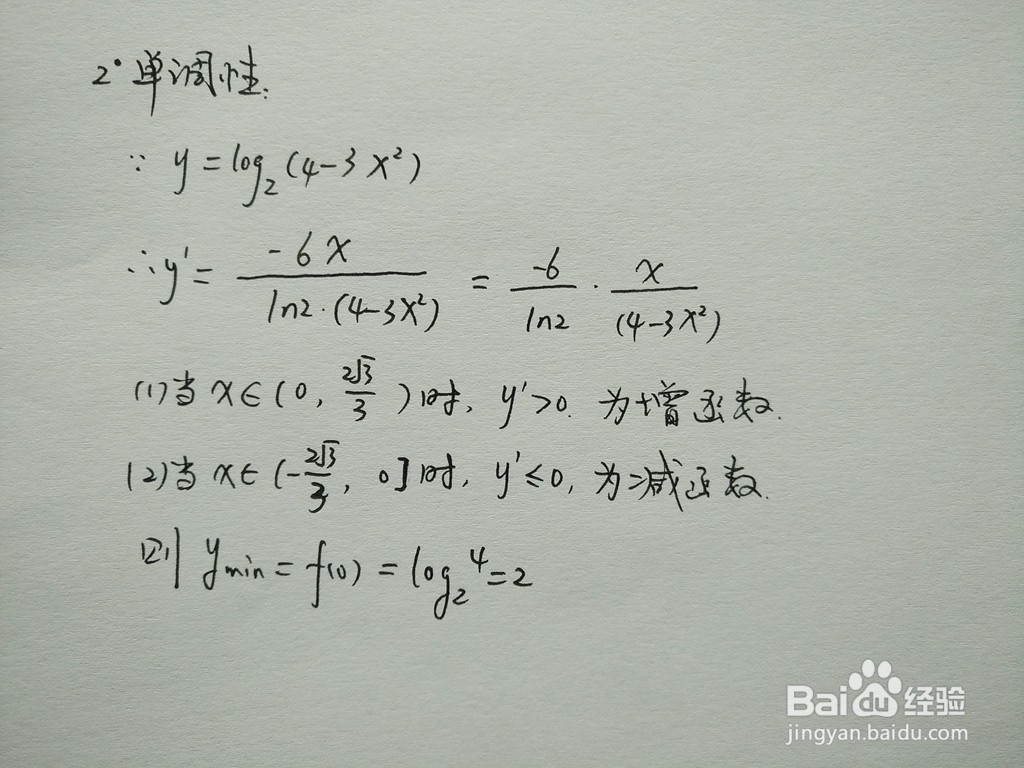 2° 单调性:
∵ y = log₂(4-3x²)
∴ y' = -6x / ln2·(4-3x²) = -6/ln2 · x/(4-3x²)
(1) 当 x∈(0, 2√3/3) 时, y'>0. 为增函数.
(2) 当 x∈(-2√3/3, 0] 时, y'≤0, 为减函数.
则 y min = f(0) = log₂4 = 2
Baidu 经验
jingyan.baidu.com